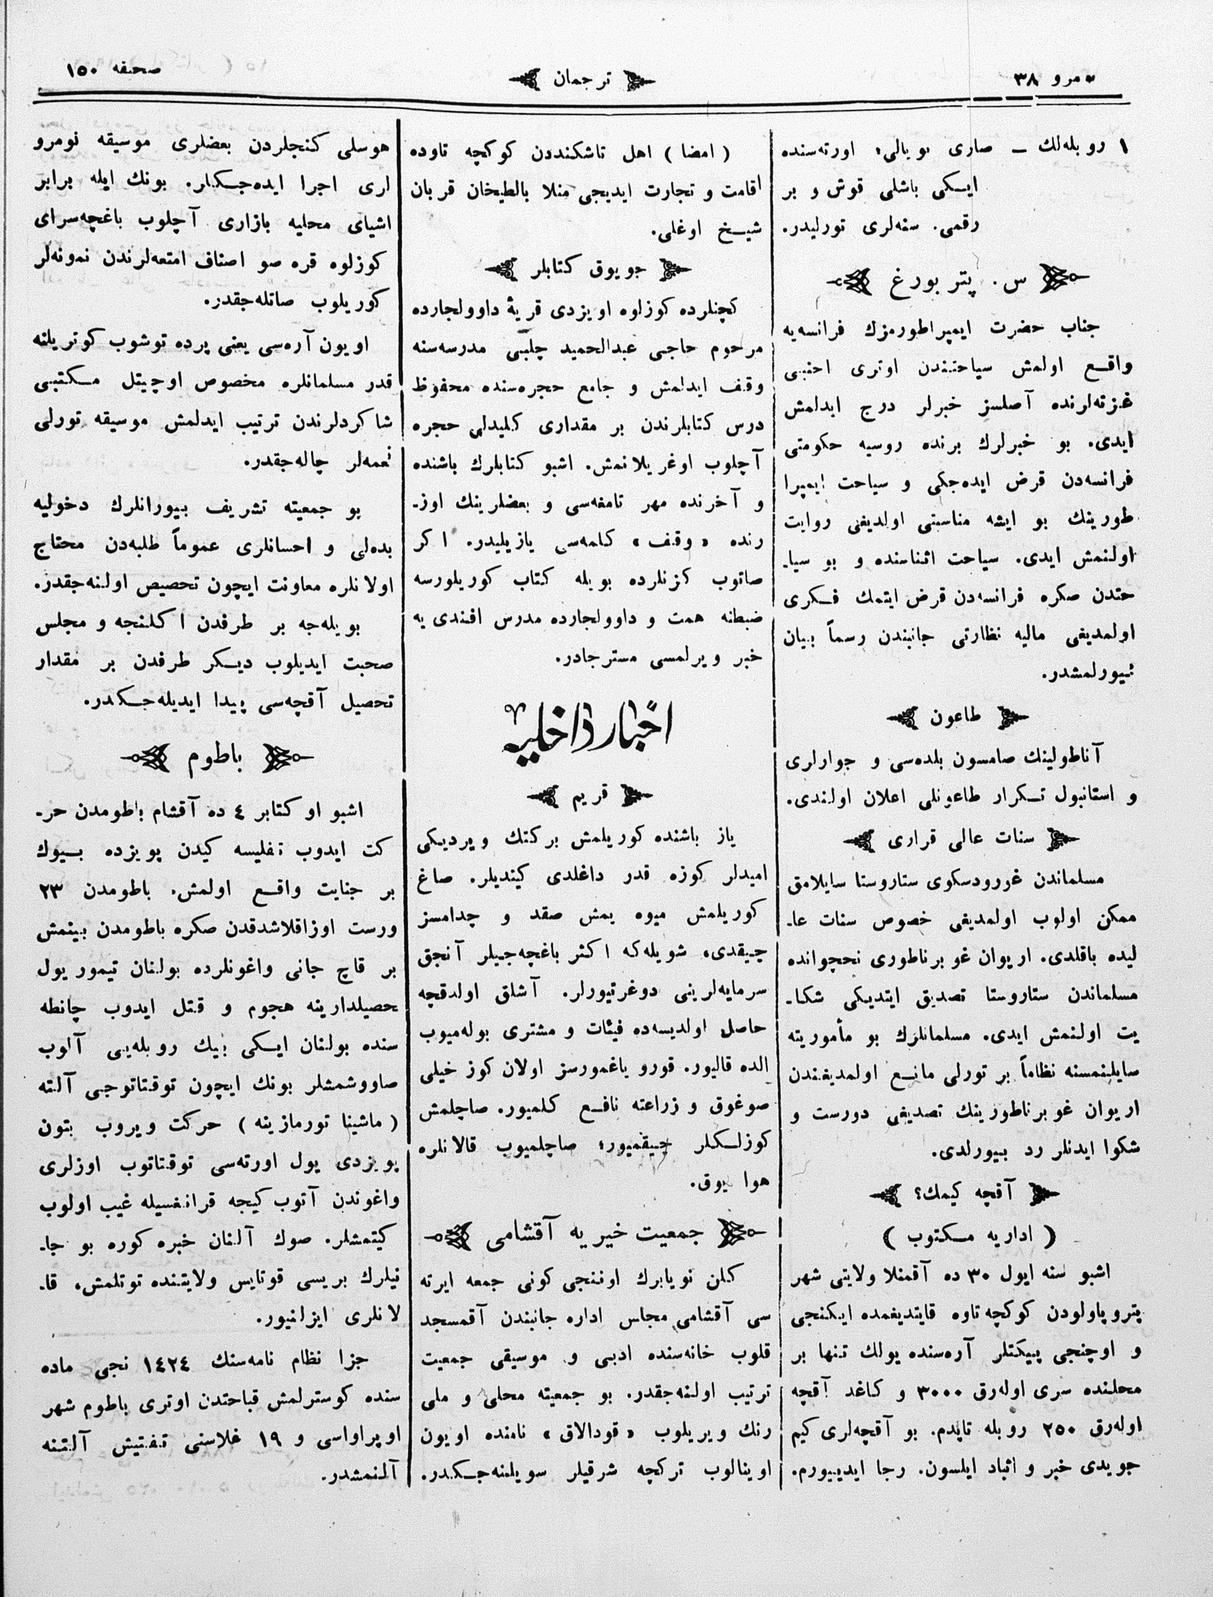 نومرو ٣٨
ترجمان
صحیفه ١٥٠
١ روبله‌لك — صاری بویالی؛ اورته‌سنده
ایكی باشلی قوش و بر
رقمی. سنه‌لری تورلیدر.
س. پتربورغ
جناب حضرت ایمپراطورمزك فرانسه‌یه
واقع اولمش سیاحتندن اوتری اجنبی
غزته‌لرنده آصلسز خبرلر درج ایدلمش
ایدی. بو خبرلرك برنده روسیه حكومتی
فرانسه‌دن قرض ایده‌جكی و سیاحت ایمپرا
طورینك بو ایشه مناسبتی اولدیغی روایت
اولنمش ایدی. سیاحت اثناسنده و بو سیا-
حتدن صكره فرانسه‌دن قرض ایتمك فكری
اولمدیغی مالیه نظارتی جانبندن رسماً بیان
بیورلمشدر.
طاعون
آناطولینك صامسون بلده‌سی و جوارلری
و استانبول تكرار طاعونلی اعلان اولندی.
سنات عالی قراری
مسلماندن غورودسكوی ستاروستا سایلامق
ممكن اولوب اولمدیغی خصوص سنات عا-
لیده باقلدی. اریوان غوبرناطوری نحچوانده
مسلماندن ستاروستا تصدیق ایتدیكی شكا-
یت اولنمش ایدی. مسلمانلرك بو مأموریته
سایلنمسنه نظاماً بر تورلی مانع اولمدیغندن
اریوان غوبرناطورینك تصدیغی دورست و
شكوا ایدنلر رد بیورلدی.
آقچه كیمك؟
( اداریه مكتوب )
اشبو سنه ایول ٣٠ ده آقمنلا ولایتی شهر
پتروپاولودن كوكچه‌تاوه قایتدیغمده ایكنجی
و اوچنجی پیكتلر آره‌سنده یولك تنها بر
محلنده سری اوله‌رق ٣٠٠٠ و كاغد آقچه
اوله‌رق ٢٥٠ روبله تاپدم. بو آقچه‌لری كیم
جویدی خبر و اثبات ایلسون. رجا ایدییورم.
( امضا ) اهل تاشكنددن كوكچه تاوده
اقامت و تجارت ایدیجی منلا بالطیخان قربان
شیخ اوغلی.
جویوق كتابلر
كچنلرده كوزلوه اویزدی قریهٔ داوولجارده
مرحوم حاجی عبدالحمید چلبی مدرسه‌سنه
وقف ایدلمش و جامع حجره‌سنده محفوظ
درس كتابلرندن بر مقداری كلیدلی حجره
آچلوب اوغریلانمش. اشبو كتابلرك باشنده
و آخرنده مهر تامغه‌سی و بعضلرینك اوز-
رنده « وقف » كلمه‌سی یازیلیدر. اكر
صاتوب كزنلرده بویله كتاب كوریلورسه
ضبطنه همت و داوولجارده مدرس افندی یه
خبر ویرلمسی مسترجادر.
اخبار داخلیه
قریم
یاز باشنده كوریلمش بركتك ویردیكی
امیدلر كوزه قدر داغلدی كیتدیلر. صاغ
كوریلمش میوه یمش صقد و چدامسز
چیقدی، شویله‌كه اكثر باغچه‌جیلر آنجق
سرمایه‌لرینی دوغرتیورلر. آشلق اولدقچه
حاصل اولدیسه‌ده فیئات و مشتری بوله‌میوب
الده قالیور. قورو یاغمورسز اولان كوز خیلی
صوغوق و زراعته نافع كلمیور. صاچلمش
كوزلكلر چیقمیور؛ صاچلمیوب قالانلره
هوا یوق.
جمعیت خیریه آقشامی
كلن نویابرك اوننجی كونی جمعه ایرته
سی آقشامی مجلس اداره جانبندن آقمسجد
قلوب خانه‌سنده ادبی و موسیقی جمعیت
ترتیب اولنه‌جقدر. بو جمعیته محلی و ملی
رنك ویریلوب « قودالاق » نامنده اویون
اوینالوب تركچه شرقیلر سویلنه‌جكدر.
هوسلی كنجلردن بعضلری موسیقه نومرو
لری اجرا ایده‌جكلر. بونك ایله برابر
اشیای محلیه بازاری آچلوب باغچه‌سرای
كوزلوه قره صو اصناف امتعه‌لرندن نمونه‌لر
كوریلوب صاتله‌جقدر.
اویون آره‌سی یعنی پرده توشوب كوتریلنه
قدر مسلمانلره مخصوص اوچیتل مكتبی
شاكردلرندن ترتیب ایدلمش موسیقه تورلی
نغمه‌لر چاله‌جقدر.
بو جمعیته تشریف بیورانلرك دخولیه
بده‌لی و احسانلری عموماً طلبه‌دن محتاج
اولانلره معاونت ایچون تحصیص اولنه‌جقدر.
بویله‌جه بر طرفدن اكلنجه و مجلس
صحبت ایدیلوب دیكر طرفدن بر مقدار
تحصیل آقچه‌سی پیدا ایدیله‌جكدر.
باطوم
اشبو اوكتابر ٤ ده آقشام باطومدن حر-
كت ایدوب تفلیسه كیدن پویزده بیوك
بر جنایت واقع اولمش. باطومدن ٢٣
ورست اوزاقلاشدقدن صكره باطومدن بینمش
بر قاچ جانی واغونلرده بولنان تیموریول
حصیلدارینه هجوم و قتل ایدوب چانطه
سنده بولنان ایكی بیك روبله‌یی آلوب
صاووشمشلر بونك ایچون توقتاتوجی آلته
( ماشینا تورمازینه ) حركت ویروب بتون
پویزدی یول اورته‌سی توقتاتوب اوزلری
واغوندن آتوب كیجه قرانغسیله غیب اولوب
كیتمشلر. صوك آلنان خبره كوره بو جا-
نیلرك بریسی قوتایس ولایتنده توتلمش، قا-
لانلری ایزلنیور.
جزا نظام نامه‌سنك ١٤٢٤ نجی ماده
سنده كوسترلمش قباحتدن اوتری باطوم شهر
اوپراواسی و ١٩ غلاسنی تفتیش آلتنه
آلنمشدر.